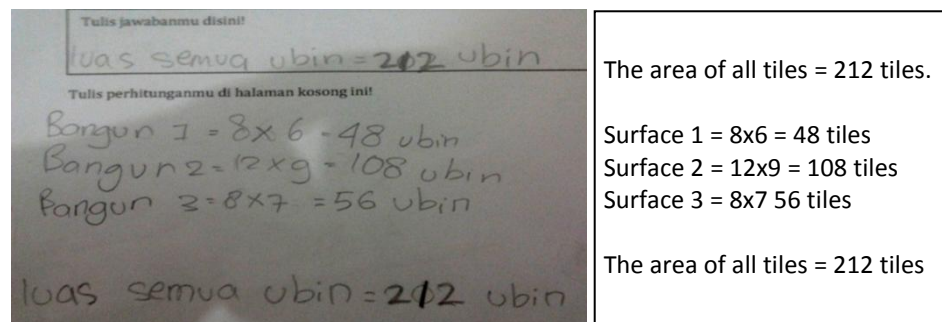 Tulis jawabanmu disini!
luas semua ubin = 212 ubin
Tulis perhitunganmu di halaman kosong ini!
Bangun 1 = 8x6 = 48 ubin
Bangun 2 = 12x9 = 108 ubin
Bangun 3 = 8x7 = 56 ubin
luas semua ubin = 212 ubin
The area of all tiles = 212 tiles.
Surface 1 = 8x6 = 48 tiles
Surface 2 = 12x9 = 108 tiles
Surface 3 = 8x7 56 tiles
The area of all tiles = 212 tiles